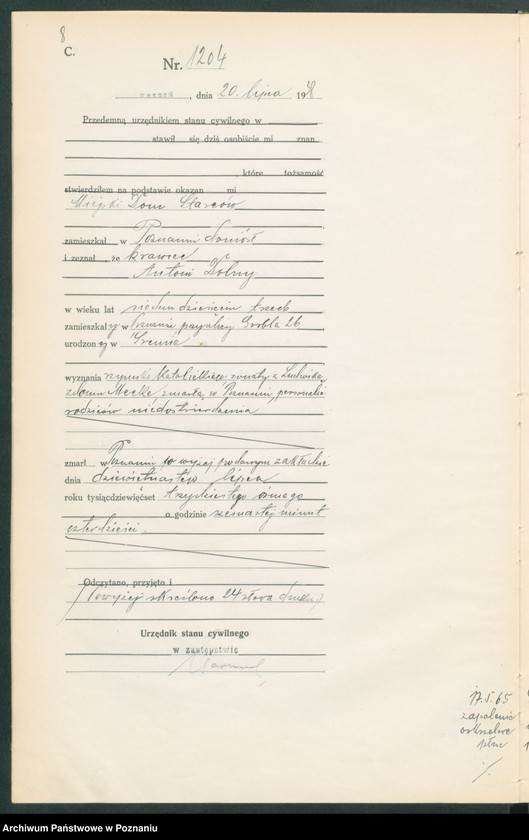 8
C.
Nr. 1204
, dnia 20. lipca 1938
Przedemną urzędnikiem stanu cywilnego w
stawił się dziś osobiście mi znan
, które tożsamość
stwierdziłem na podstawie okazan mi
Miejski Dom Starców
zamieszkał w Poznaniu doniósł
i zeznał, że krawiec
Antoni Dolny
w wieku lat siedemdziesięciu trzech
zamieszkały w Poznaniu, przy ulicy Grobla 26
urodzony w Śremie
wyznania rzymsko katolickiego żonaty z Ludwiką
zdomu zmarłą w Poznaniu, personalia
rodziców
zmarł w Poznaniu w wyżej podanym zakładzie
dnia dziewiętnastego lipca
roku tysiącdziewięćset trzydziestego ósmego
o godzinie szesnastej minut
czterdzieści.
Odczytano, przyjęto i
Powyżej skreślono 24 słowa druku.
Urzędnik stanu cywilnego
w zastępstwie
17.5.65
zapalenie
oskrzelowe
płuc
Archiwum Państwowe w Poznaniu